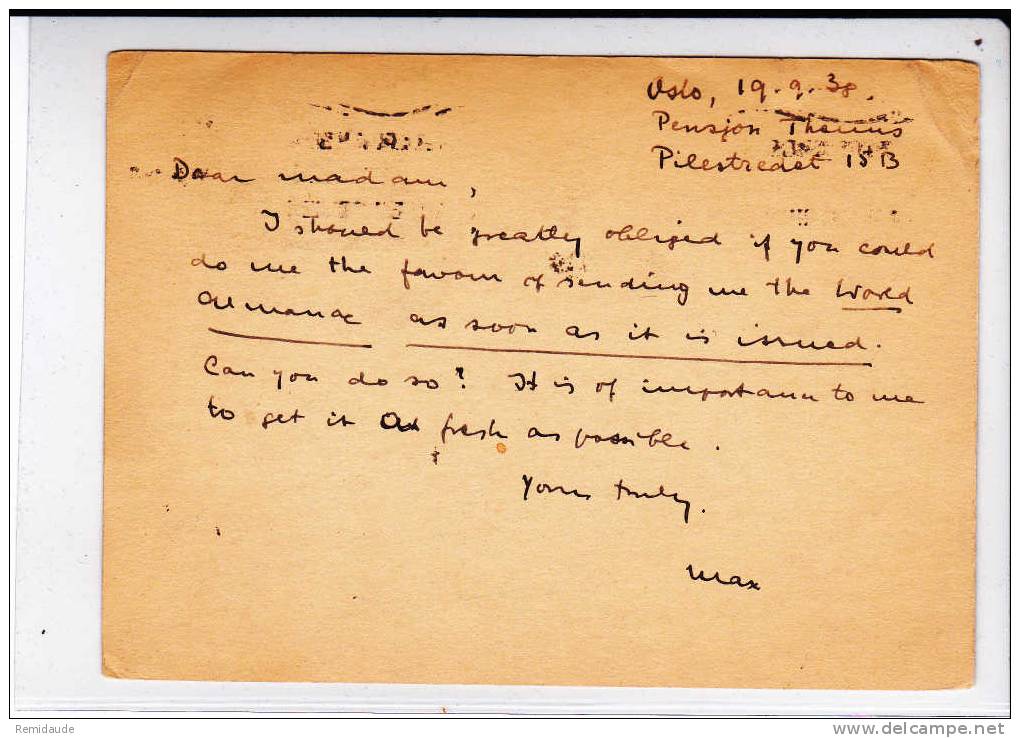 Oslo, 19.9.38.
Pensjon
Pilestredet 15B
Dear madam,
I should be greatly obliged if you could
do me the favour of sending me the World
Almanac as soon as it is issued.
Can you do so? It is of importance to me
to get it as fresh as possible.
Yours truly.
Max
Remidaude
www.delcampe.net